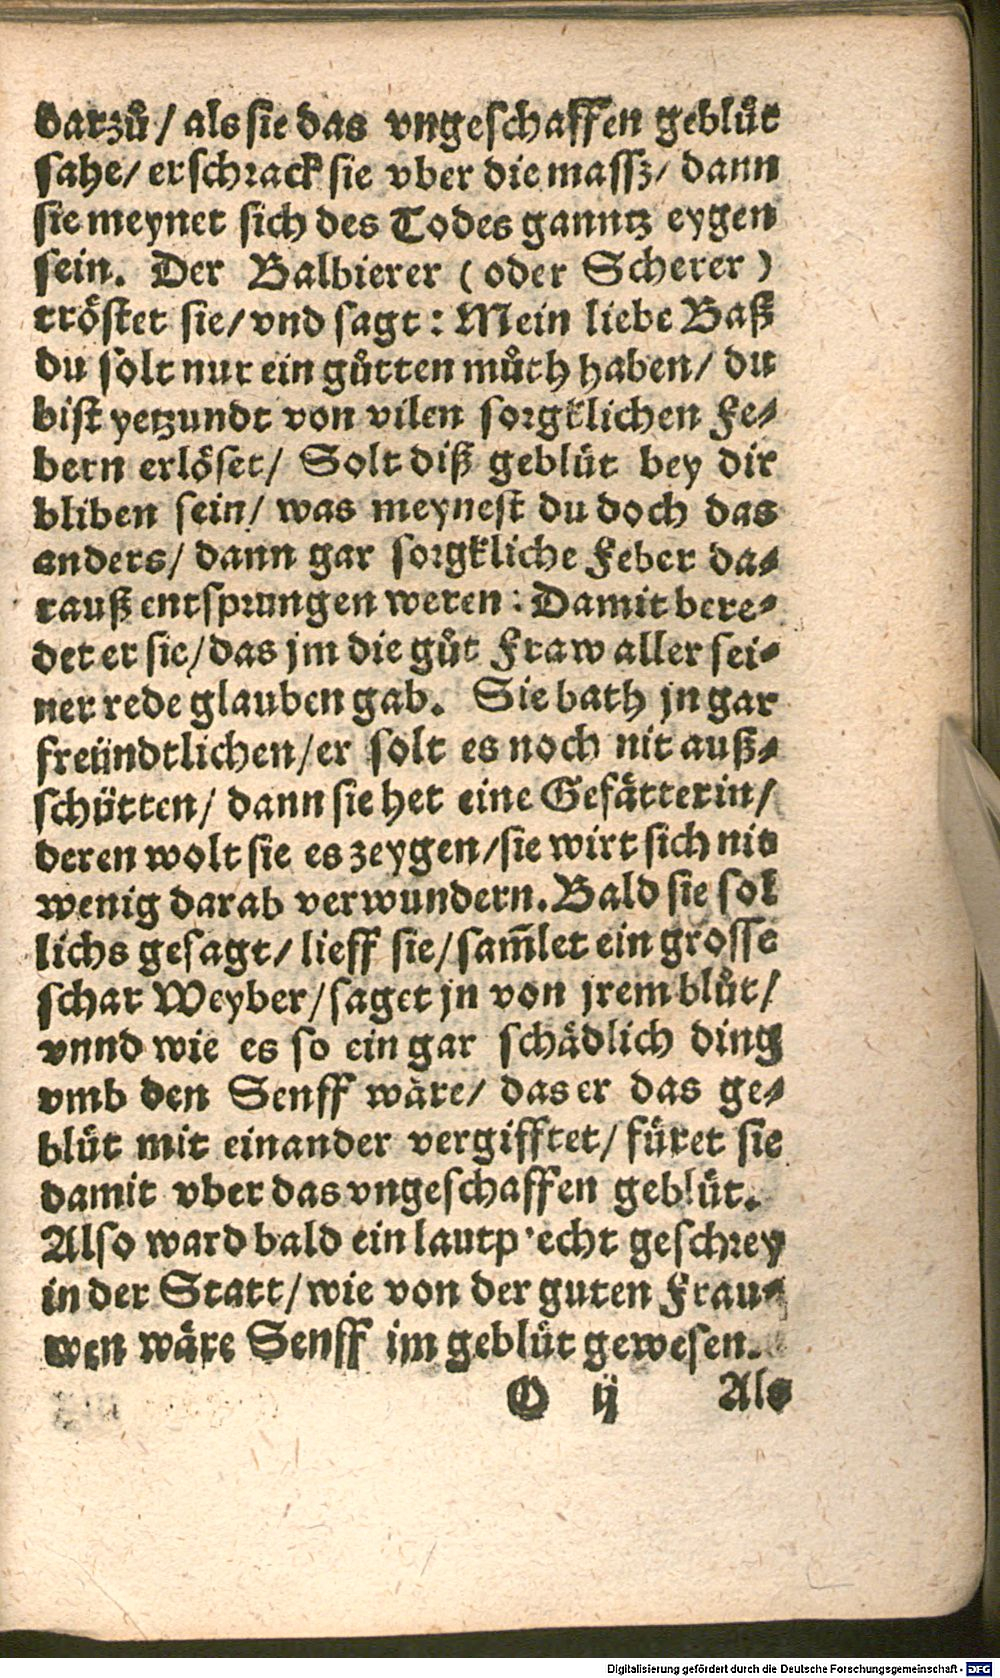 darzů / als sie das vngeschaffen geblůt
sahe / erschrack sie vber die massz / dann
sie meynet sich des Todes ganntz eygen
sein. Der Balbierer ( oder Scherer )
tröstet sie / vnd sagt : Mein liebe Baß
du solt nur ein gůtten můth haben / du
bist yetzundt von vilen sorgklichen Fe⸗
bern erlöset / Solt diß geblüt bey dir
bliben sein / was meynest du doch das
anders / dann gar sorgkliche Feber da⸗
rauß entsprungen weren : Damit bere⸗
det er sie / das jm die gůt Fraw aller sei⸗
ner rede glauben gab. Sie bath jn gar
freündtlichen / er solt es noch nit auß⸗
schütten / dann sie het eine Gefätterin /
deren wolt sie es zeygen / sie wirt sich nit
wenig darab verwundern. Bald sie sol
lichs gesagt / lieff sie / sam̃let ein grosse
schar Weyber / saget jn von jrem blůt /
vnnd wie es so ein gar schädlich ding
vmb den Senff wäre / das er das ge⸗
blüt mit einander vergifftet / füret sie
damit vber das vngeschaffen geblüt.
Also ward bald ein lautp echt geschrey
in der Statt / wie von der guten Frau⸗
wen wäre Senff im geblüt gewesen.
O ij Als
Digitalisierung gefördert durch die Deutsche Forschungsgemeinschaft - DFG